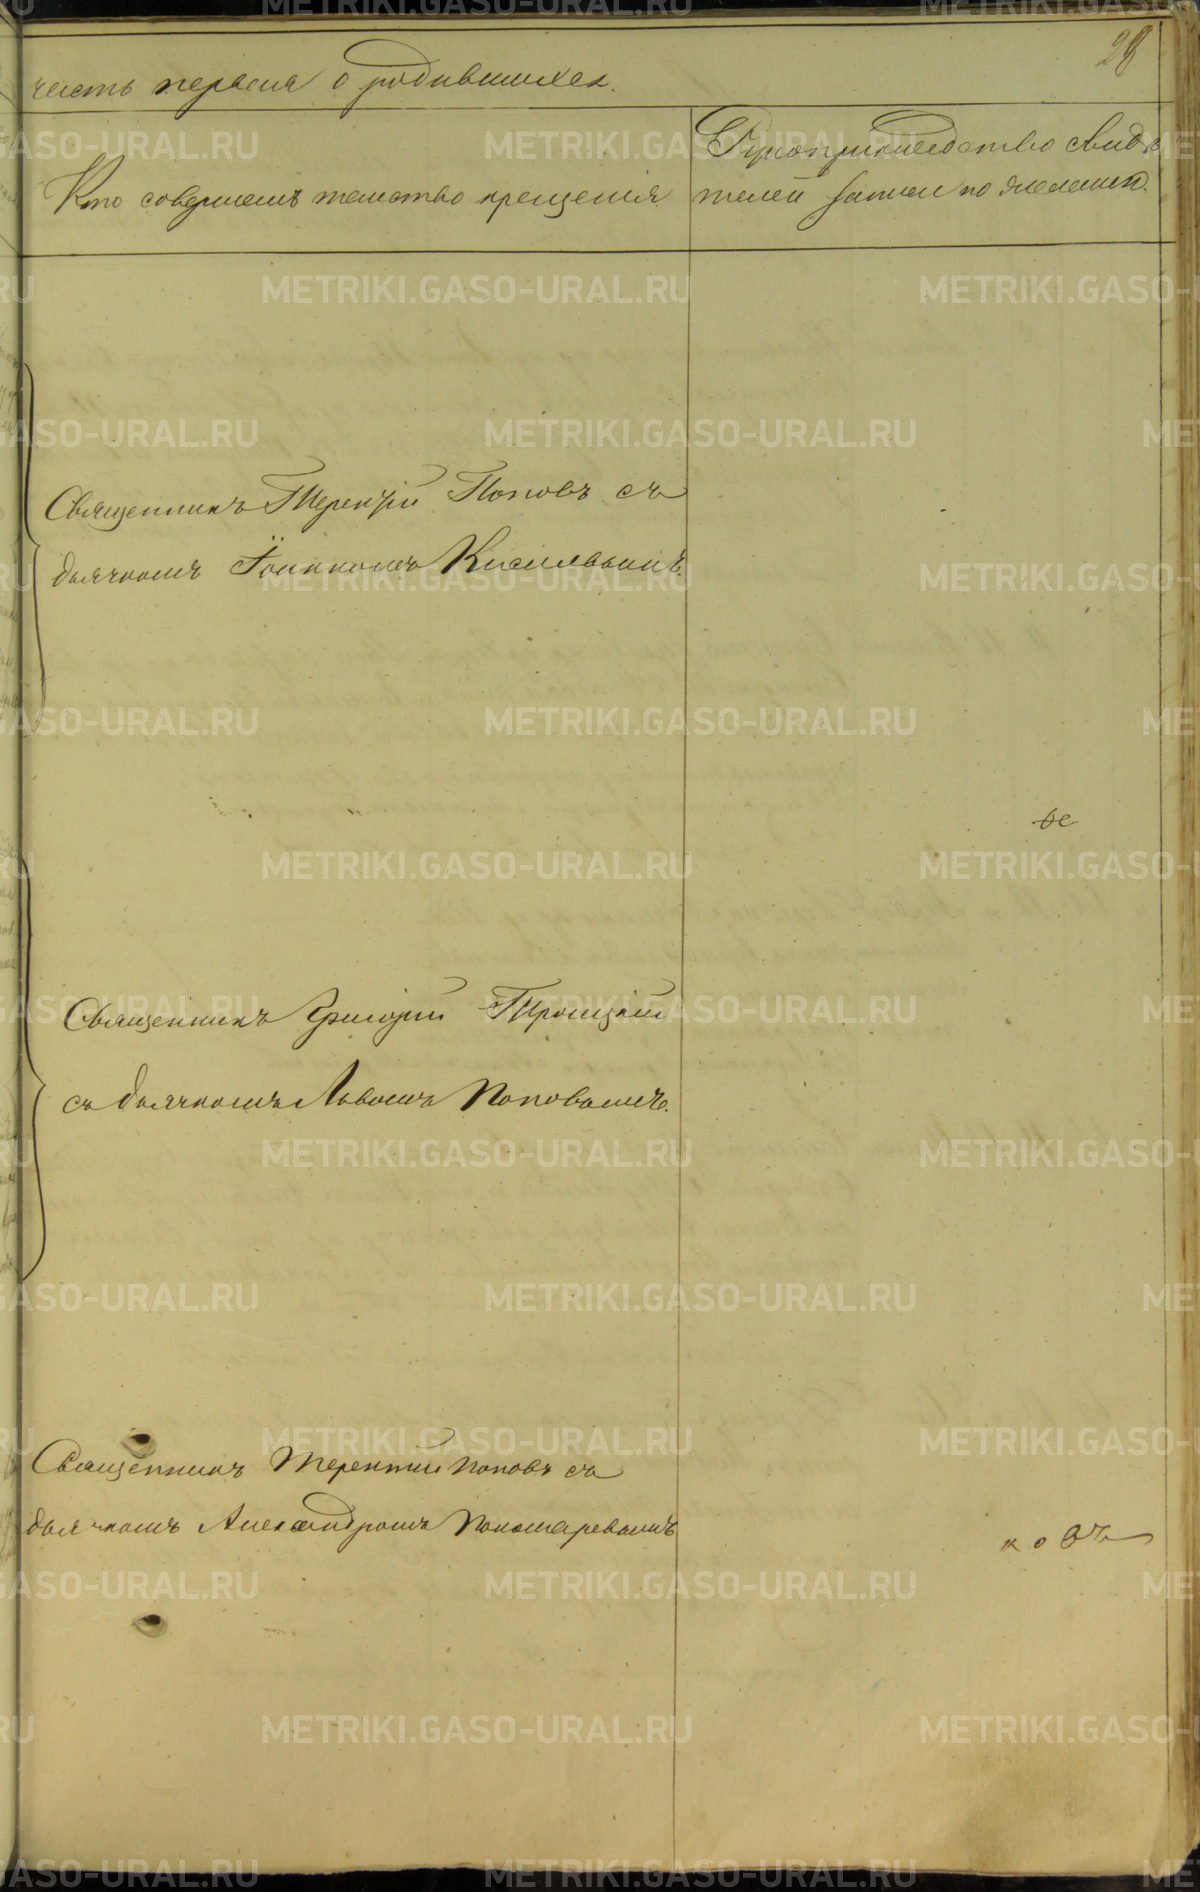 28
часть первая о родившихся.
Кто совершалъ таинство крещенія
Рукоприкладство свидѣ
телей записи по желанію.
Священникъ Терентій Поповъ съ
дьячкомъ Іоанномъ Кисилевымъ.
Священникъ Григорій Троицкій
съ дьячкомъ Львомъ Поповымъ.
Священникъ Терентій Поповъ съ
дьячкомъ Александромъ Пономаревымъ
METRIKI.GASO-URAL.RU